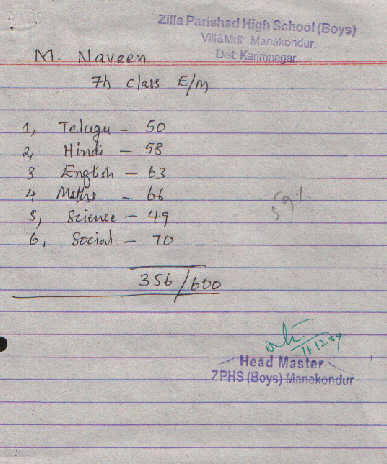 Zilla Parishad High School (Boys)
Vill&Mdl: Manakondur
Dist: Karimnagar.
M. Naveen
7th class E/M
1, Telugu - 50
2, Hindi - 58
3 English - 63
4 Maths - 66
5, Science - 49
6, Social - 70
59%
356/600
11.12.09
Head Master
ZPHS (Boys) Manakondur